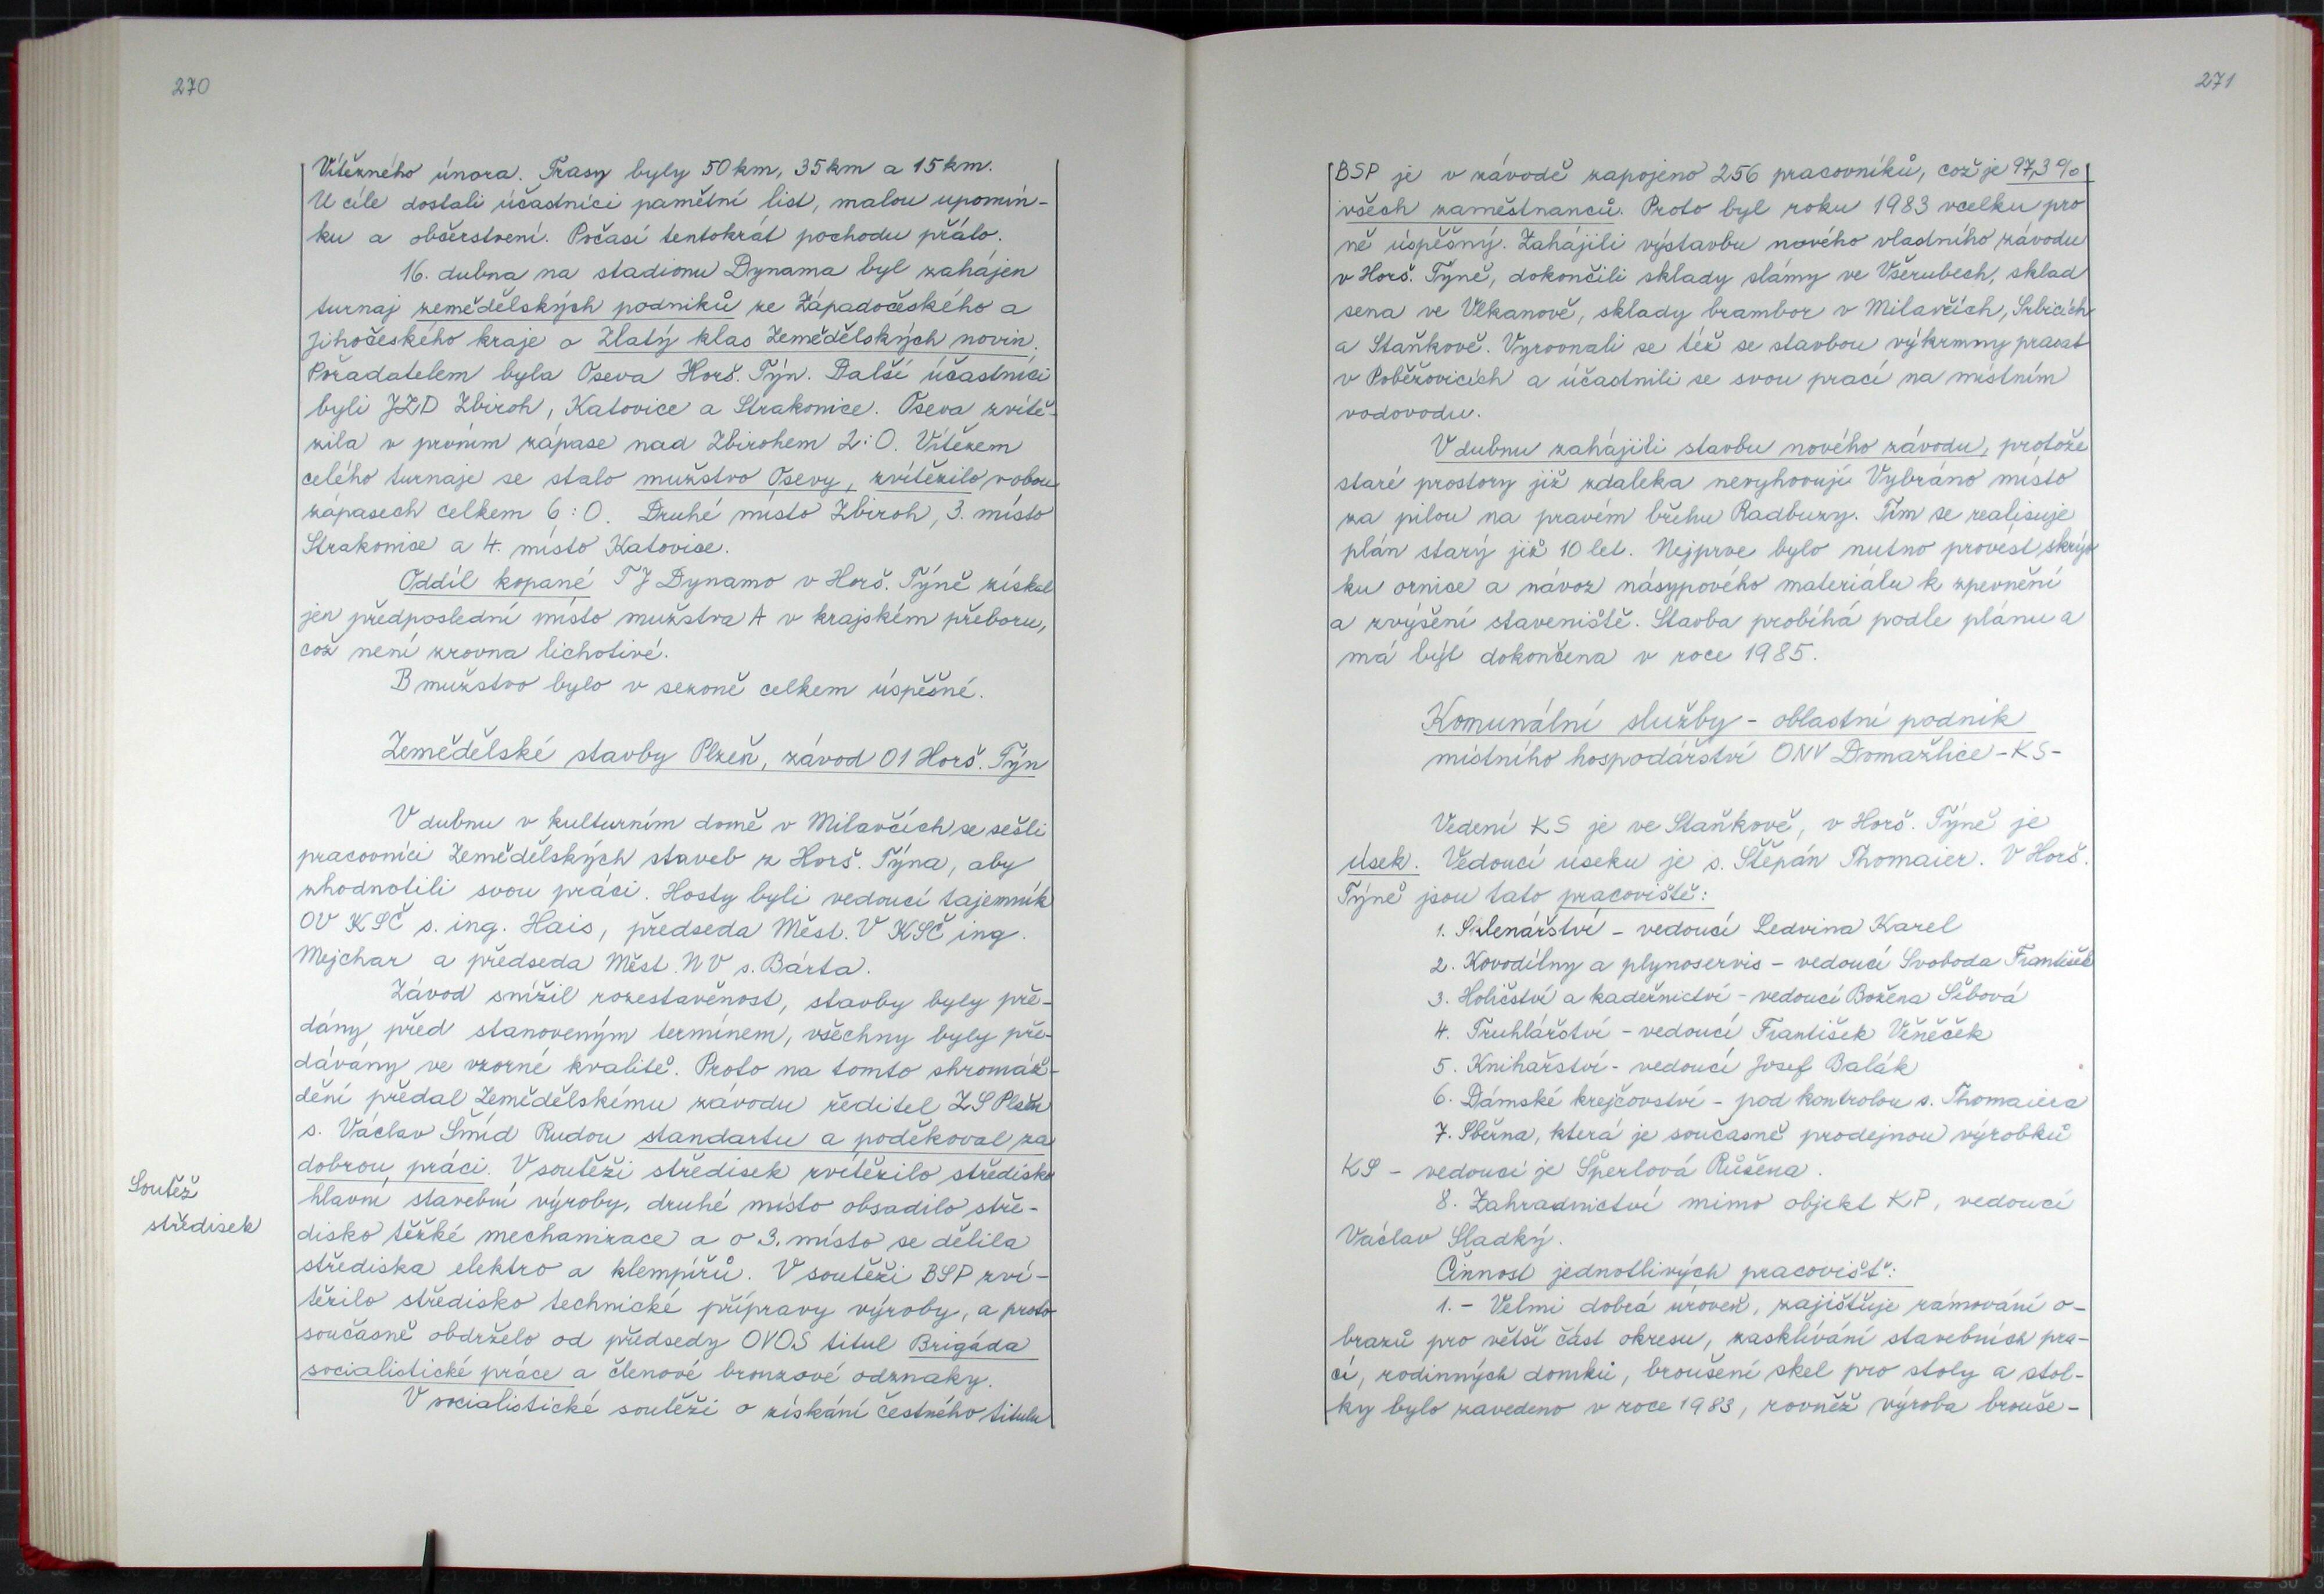 270
Vítězného února. Trasy byly 50 km, 35 km a 15 km.
U cíle dostali účastníci pamětní list, malou upomín-
ku a občerstvení. Počasí tentokrát pochodu přálo.
16. dubna na stadionu Dynama byl zahájen
turnaj zemědělských podniků ze Západočeského a
Jihočeského kraje o Zlatý klas Zemědělských novin.
Pořadatelem byla Oseva Horš. Týn. Další účastníci
byli JZD Zbiroh, Katovice a Strakonice. Oseva zvítě-
zila v prvním zápase nad Zbirohem 2:0. Vítězem
celého turnaje se stalo mužstvo Osevy, zvítězilo v obou
zápasech celkem 6:0. Druhé místo Zbiroh, 3. místo
Strakonice a 4. místo Katovice.
Oddíl kopané TJ Dynamo v Horš. Týně získal
jen předposlední místo mužstva A v krajském přeboru,
což není zrovna lichotivé.
B mužstvo bylo v sezoně celkem úspěšné.
Zemědělské stavby Plzeň, závod 01 Horš. Týn
V dubnu v kulturním domě v Milavčích se sešli
pracovníci Zemědělských staveb z Horš. Týna, aby
zhodnotili svou práci. Hosty byli vedoucí tajemník
OV KSČ s. ing. Hais, předseda Měst. V KSČ ing.
Mejchar a předseda Měst. NV s. Bárta.
Závod snížil rozestavěnost, stavby byly pře-
dány před stanoveným termínem, všechny byly pře-
dávány ve vzorné kvalitě. Proto na tomto shromáž-
dění předal Zemědělskému závodu ředitel ZS Plzeň
s. Václav Šmíd Rudou standartu a poděkoval za
dobrou práci. V soutěži středisek zvítězilo středisko
Soutěž
středisek
hlavní stavební výroby, druhé místo obsadilo stře-
disko těžké mechanizace a o 3. místo se dělila
střediska elektro a klempířů. V soutěži BSP zví-
tězilo středisko technické přípravy výroby, a proto
současně obdrželo od předsedy OVOS titul Brigáda
socialistické práce a členové bronzové odznaky.
V socialistické soutěži o získání čestného titulu
271
BSP je v závodě zapojeno 256 pracovníků, což je 97,3 %
všech zaměstnanců. Proto byl roku 1983 vcelku pro
ně úspěšný. Zahájili výstavbu nového vlastního závodu
v Horš. Týně, dokončili sklady slámy ve Všerubech, sklad
sena ve Vlkanově, sklady brambor v Milavčích, Srbicích
a Staňkově. Vyrovnali se též se stavbou výkrmny prasat
v Poběžovicích a účastnili se svou prací na místním
vodovodu.
V dubnu zahájili stavbu nového závodu, protože
staré prostory již zdaleka nevyhovují. Vybráno místo
za pilou na pravém břehu Radbuzy. Tím se realisuje
plán starý již 10 let. Nejprve bylo nutno provést skrýv
ku ornice a návoz násypového materiálu k zpevnění
a zvýšení staveniště. Stavba probíhá podle plánu a
má být dokončena v roce 1985.
Komunální služby - oblastní podnik
místního hospodářství ONV Domažlice - KS -
Vedení KS je ve Staňkově, v Horš. Týně je
úsek. Vedoucí úseku je s. Štěpán Thomaier. V Horš.
Týně jsou tato pracoviště:
1. Sklenářství - vedoucí Ledvina Karel
2. Kovodílny a plynoservis - vedoucí Svoboda František
3. Holičství a kadeřnictví - vedoucí Božena Síbová
4. Truhlářství - vedoucí František Věněček
5. Knihařství - vedoucí Josef Balák
6. Dámské krejčovství - pod kontrolou s. Thomaiera
7. Sběrna, která je současně prodejnou výrobků
KS - vedoucí je Šperlová Růžena.
8. Zahradnictví mimo objekt KP, vedoucí
Václav Sladký.
Činnost jednotlivých pracovišť:
1. - Velmi dobrá úroveň, zajišťuje rámování o-
brazů pro větší část okresu, zasklívání stavebních pra-
cí, rodinných domků, broušení skel pro stoly a stol-
ky bylo zavedeno v roce 1983, rovněž výroba brouše-